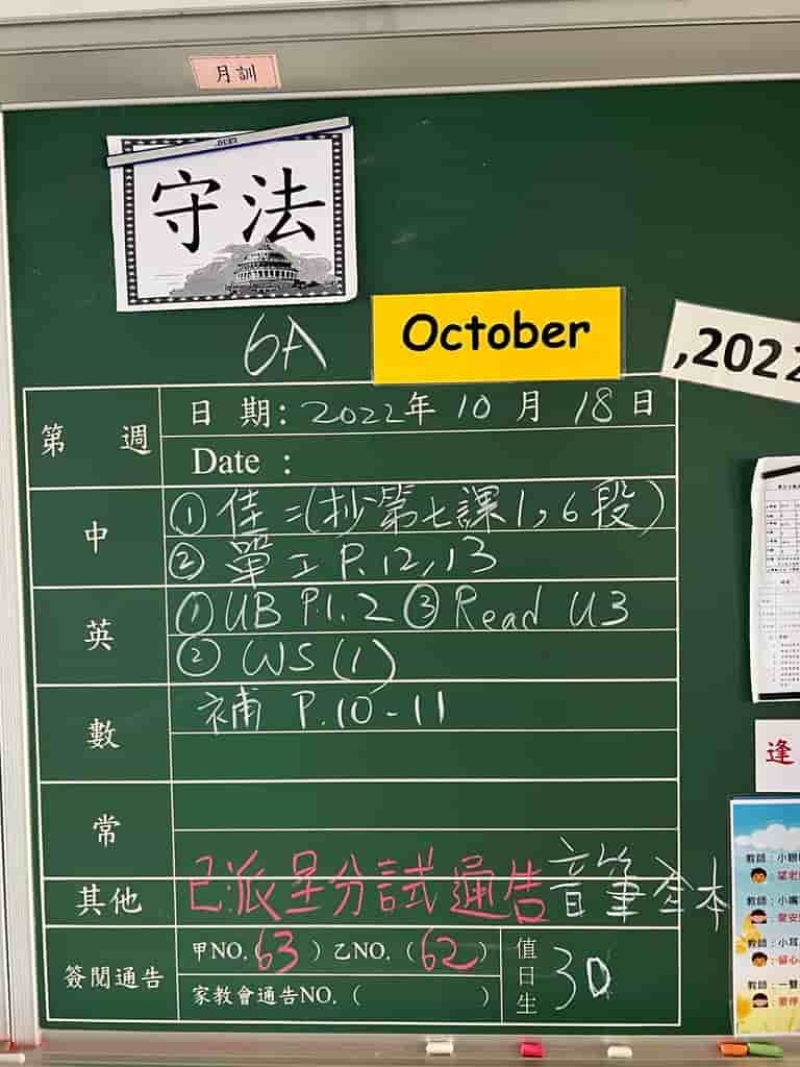 月訓
守法
6A
October
,2022
第 週
日 期: 2022年 10 月 18日
Date :
中
① 佳二(抄第七課1,6段)
② 單工 P.12,13
英
① UB P.1.2 ③ Read U3
② WS (1)
數
補 P.10-11
常
其他
已派呈分試通告 音筆全本
簽閱通告
甲NO. 63 ) 乙NO. ( 62 )
家教會通告NO. ( )
值日生
30
逢
教師:小眼
教師:小嘴
教師:小耳
教師:一雙